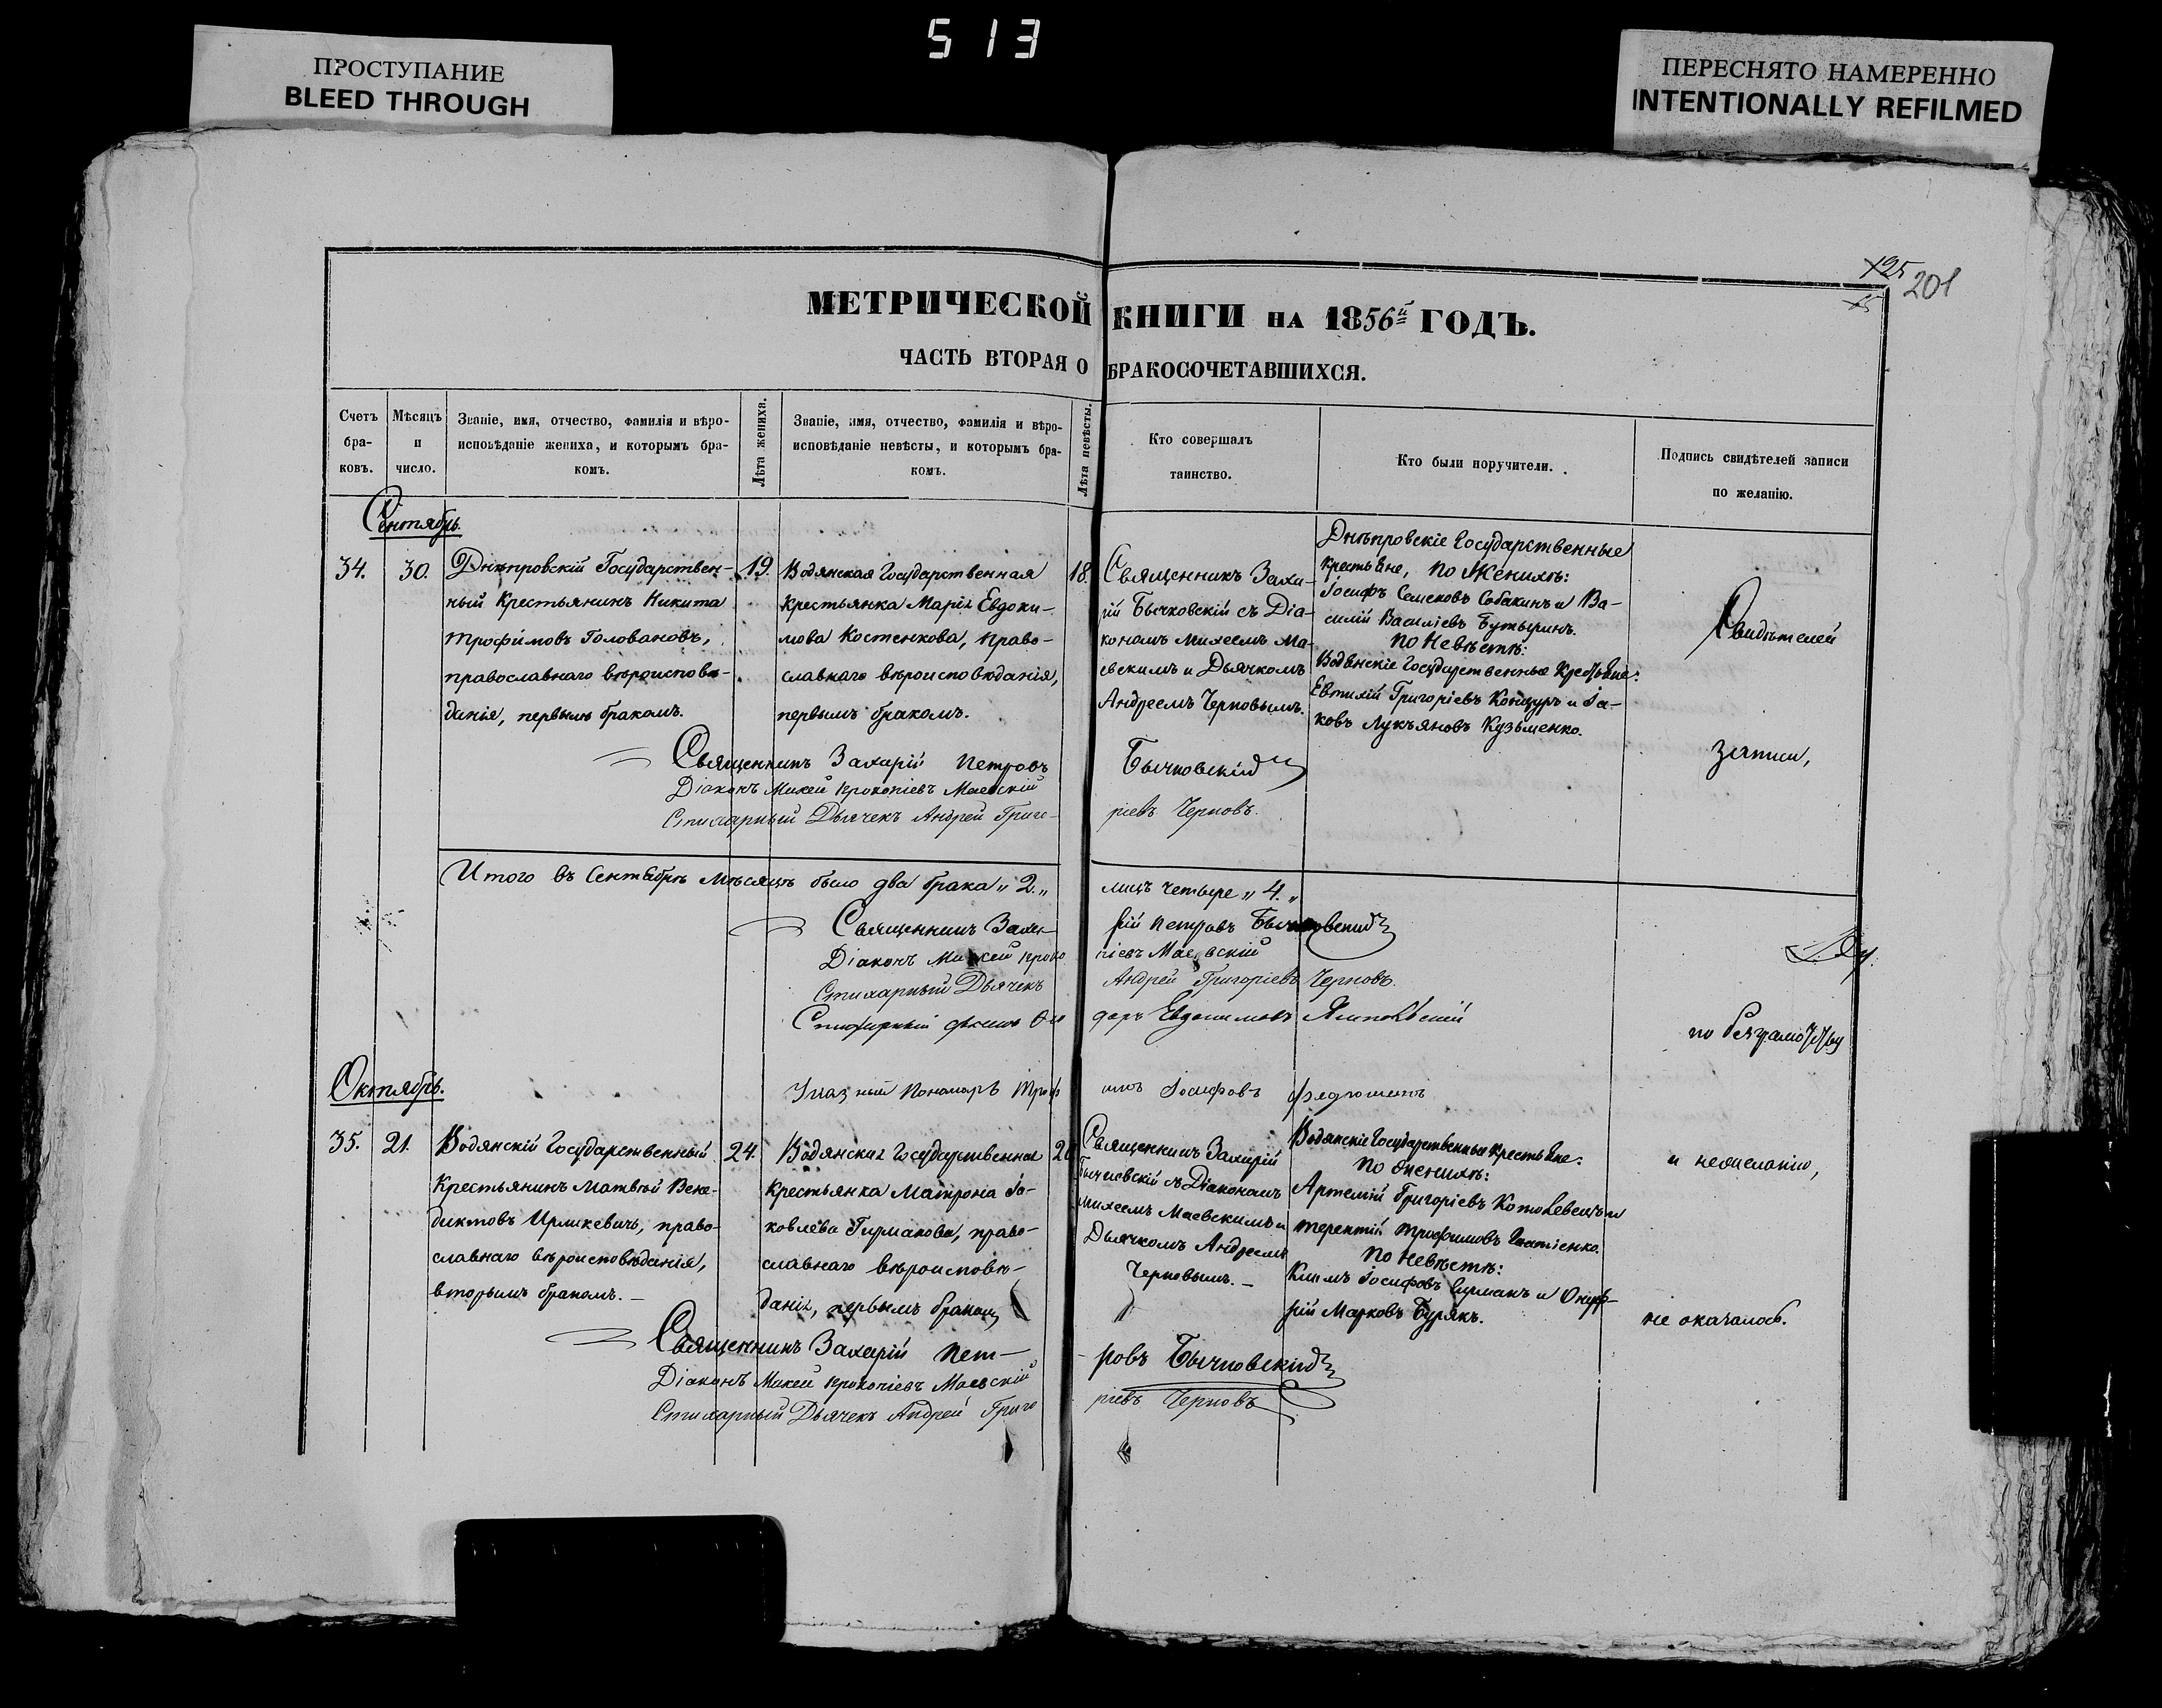 513
ПРОСТУПАНИЕ
BLEED THROUGH
ПЕРЕСНЯТО НАМЕРЕННО
INTENTIONALLY REFILMED
125
201
МЕТРИЧЕСКОЙ КНИГИ НА 1856й ГОДЪ.
ЧАСТЬ ВТОРАЯ О БРАКОСОЧЕТАВШИХСЯ.
Счетъ
бра-
ковъ.
Мѣсяцъ
и
число.
Званіе, имя, отчество, фамилія и вѣро-
исповѣданіе жениха, и которымъ бра-
комъ.
Лѣта жениха.
Званіе, имя, отчество, фамилія и вѣро-
исповѣданіе невѣсты, и которымъ бра-
комъ.
Лѣта невѣсты.
Кто совершалъ
таинство.
Кто были поручители.
Подпись свидѣтелей записи
по желанію.
Сентябрь.
34.
30.
Днѣпровскій Государствен-
ный Крестьянинъ Никита
Трофимовъ Головановъ,
православнаго вѣроисповѣ-
данія, первымъ бракомъ.
19.
Водянская Государственная
Крестьянка Марія Евдоки-
мова Костенкова, право-
славнаго вѣроисповѣданія,
первымъ бракомъ.
18.
Священникъ Заха-
рій Бычковскій съ Діа-
кономъ Михеемъ Ма-
евскимъ и Дьячкомъ
Андреемъ Черновымъ.
Днѣпровскіе Государственные
Крестьяне, по Женихѣ:
Іосифъ Семеновъ Собакинъ и Ва-
силій Василіевъ Бутыринъ.
по Невѣстѣ:
Водянскіе Государственные Крестьяне:
Евтихій Григоріевъ Концуръ и Іа-
ковъ Лукьяновъ Кузьменко.
Свидѣтелей
записи,
Священникъ Захарій Петровъ Бычковскій
Діаконъ Михей Прокопіевъ Маевскій
Стихарный Дьячекъ Андрей Григо-
ріевъ Черновъ.
Итого въ Сентябрѣ мѣсяцѣ было два брака „2.„ лицъ четыре „4.„
Священникъ Заха-
рій Петровъ Бычковскій
Діаконъ Михей Проко
піевъ Маевскій
Стихарный Дьячекъ Андрей Григоріевъ Черновъ.
Стихарный
доръ Евдокимовъ
по безграмотству
Указный Пономарь Троф
имъ Іосифовъ
Октябрь.
35.
21.
Водянскій Государственный
Крестьянинъ Матвѣй Вене-
диктовъ Ирликевичъ, право-
славнаго вѣроисповѣданія,
вторымъ бракомъ.
24.
Водянская Государственная
Крестьянка Матрона Іа-
ковлева Гурмакова, право-
славнаго вѣроисповѣ-
данія, первымъ бракомъ
Священникъ Захарій
Бычковскій съ Діакономъ
Михеемъ Маевскимъ и
Дьячкомъ Андреемъ
Черновымъ.
Водянскіе Государственные Крестьяне:
по Женихѣ:
Артемій Григоріевъ Котлевецъ и
Терентій Трофимовъ Гнатіенко.
по Невѣстѣ:
Климъ Іосифовъ Гурманъ и Онуф-
рій Марковъ Бурякъ.
и нежеланію,
не оказалось.
Священникъ Захарій Пет-
ровъ Бычковскій
Діаконъ Михей Прокопіевъ Маевскій
Стихарный Дьячекъ Андрей Григо
ріевъ Черновъ